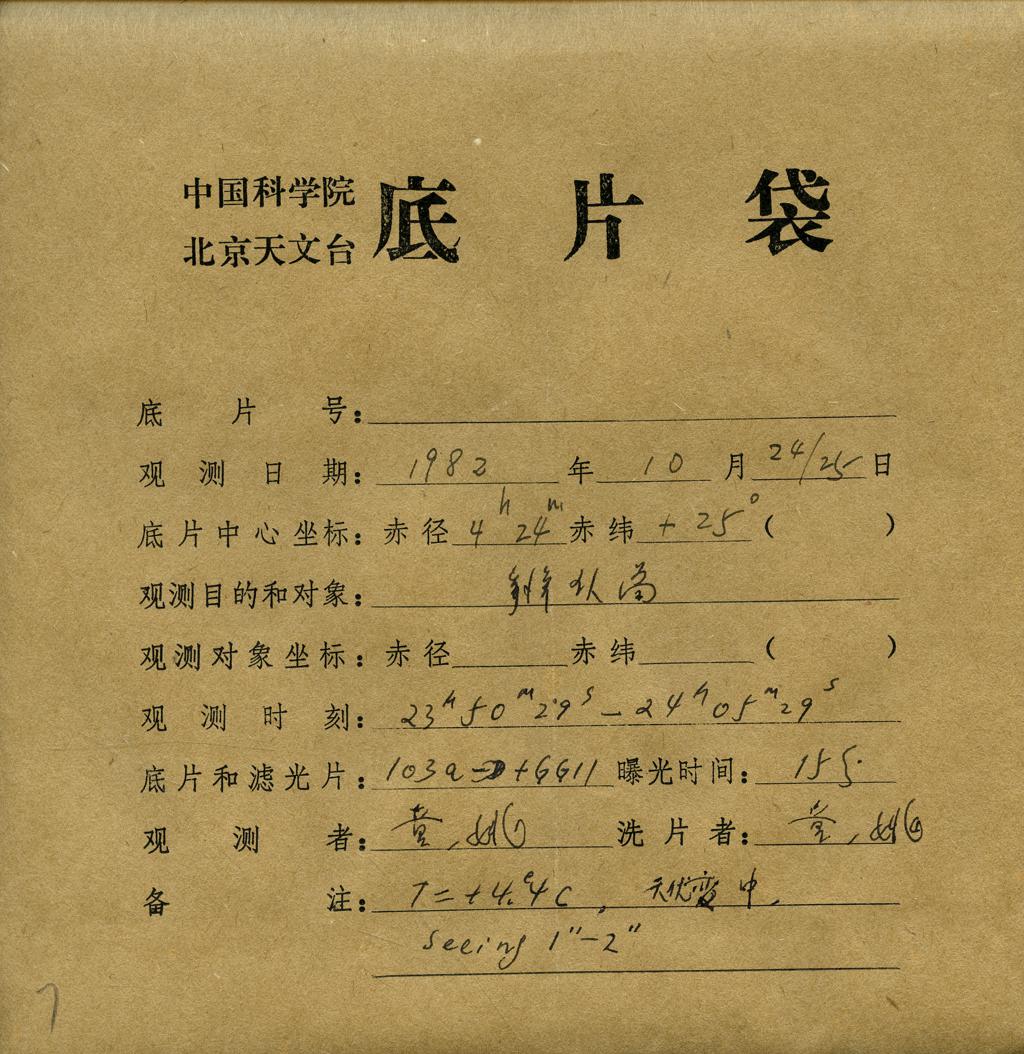 中国科学院
北京天文台
底片袋
底片号:
观测日期: 1982 年 10 月 24/25 日
底片中心坐标: 赤径 4h 24m 赤纬 +25° ( )
观测目的和对象:
观测对象坐标: 赤径 赤纬 ( )
观测时刻: 23h50m29s — 24h05m29s
底片和滤光片: 103a-D+GG11 曝光时间: 15
观测者: 黄, 姚 洗片者: 黄, 姚
备注: T=+4.°4C, 天优变中.
seeing 1"-2"
7